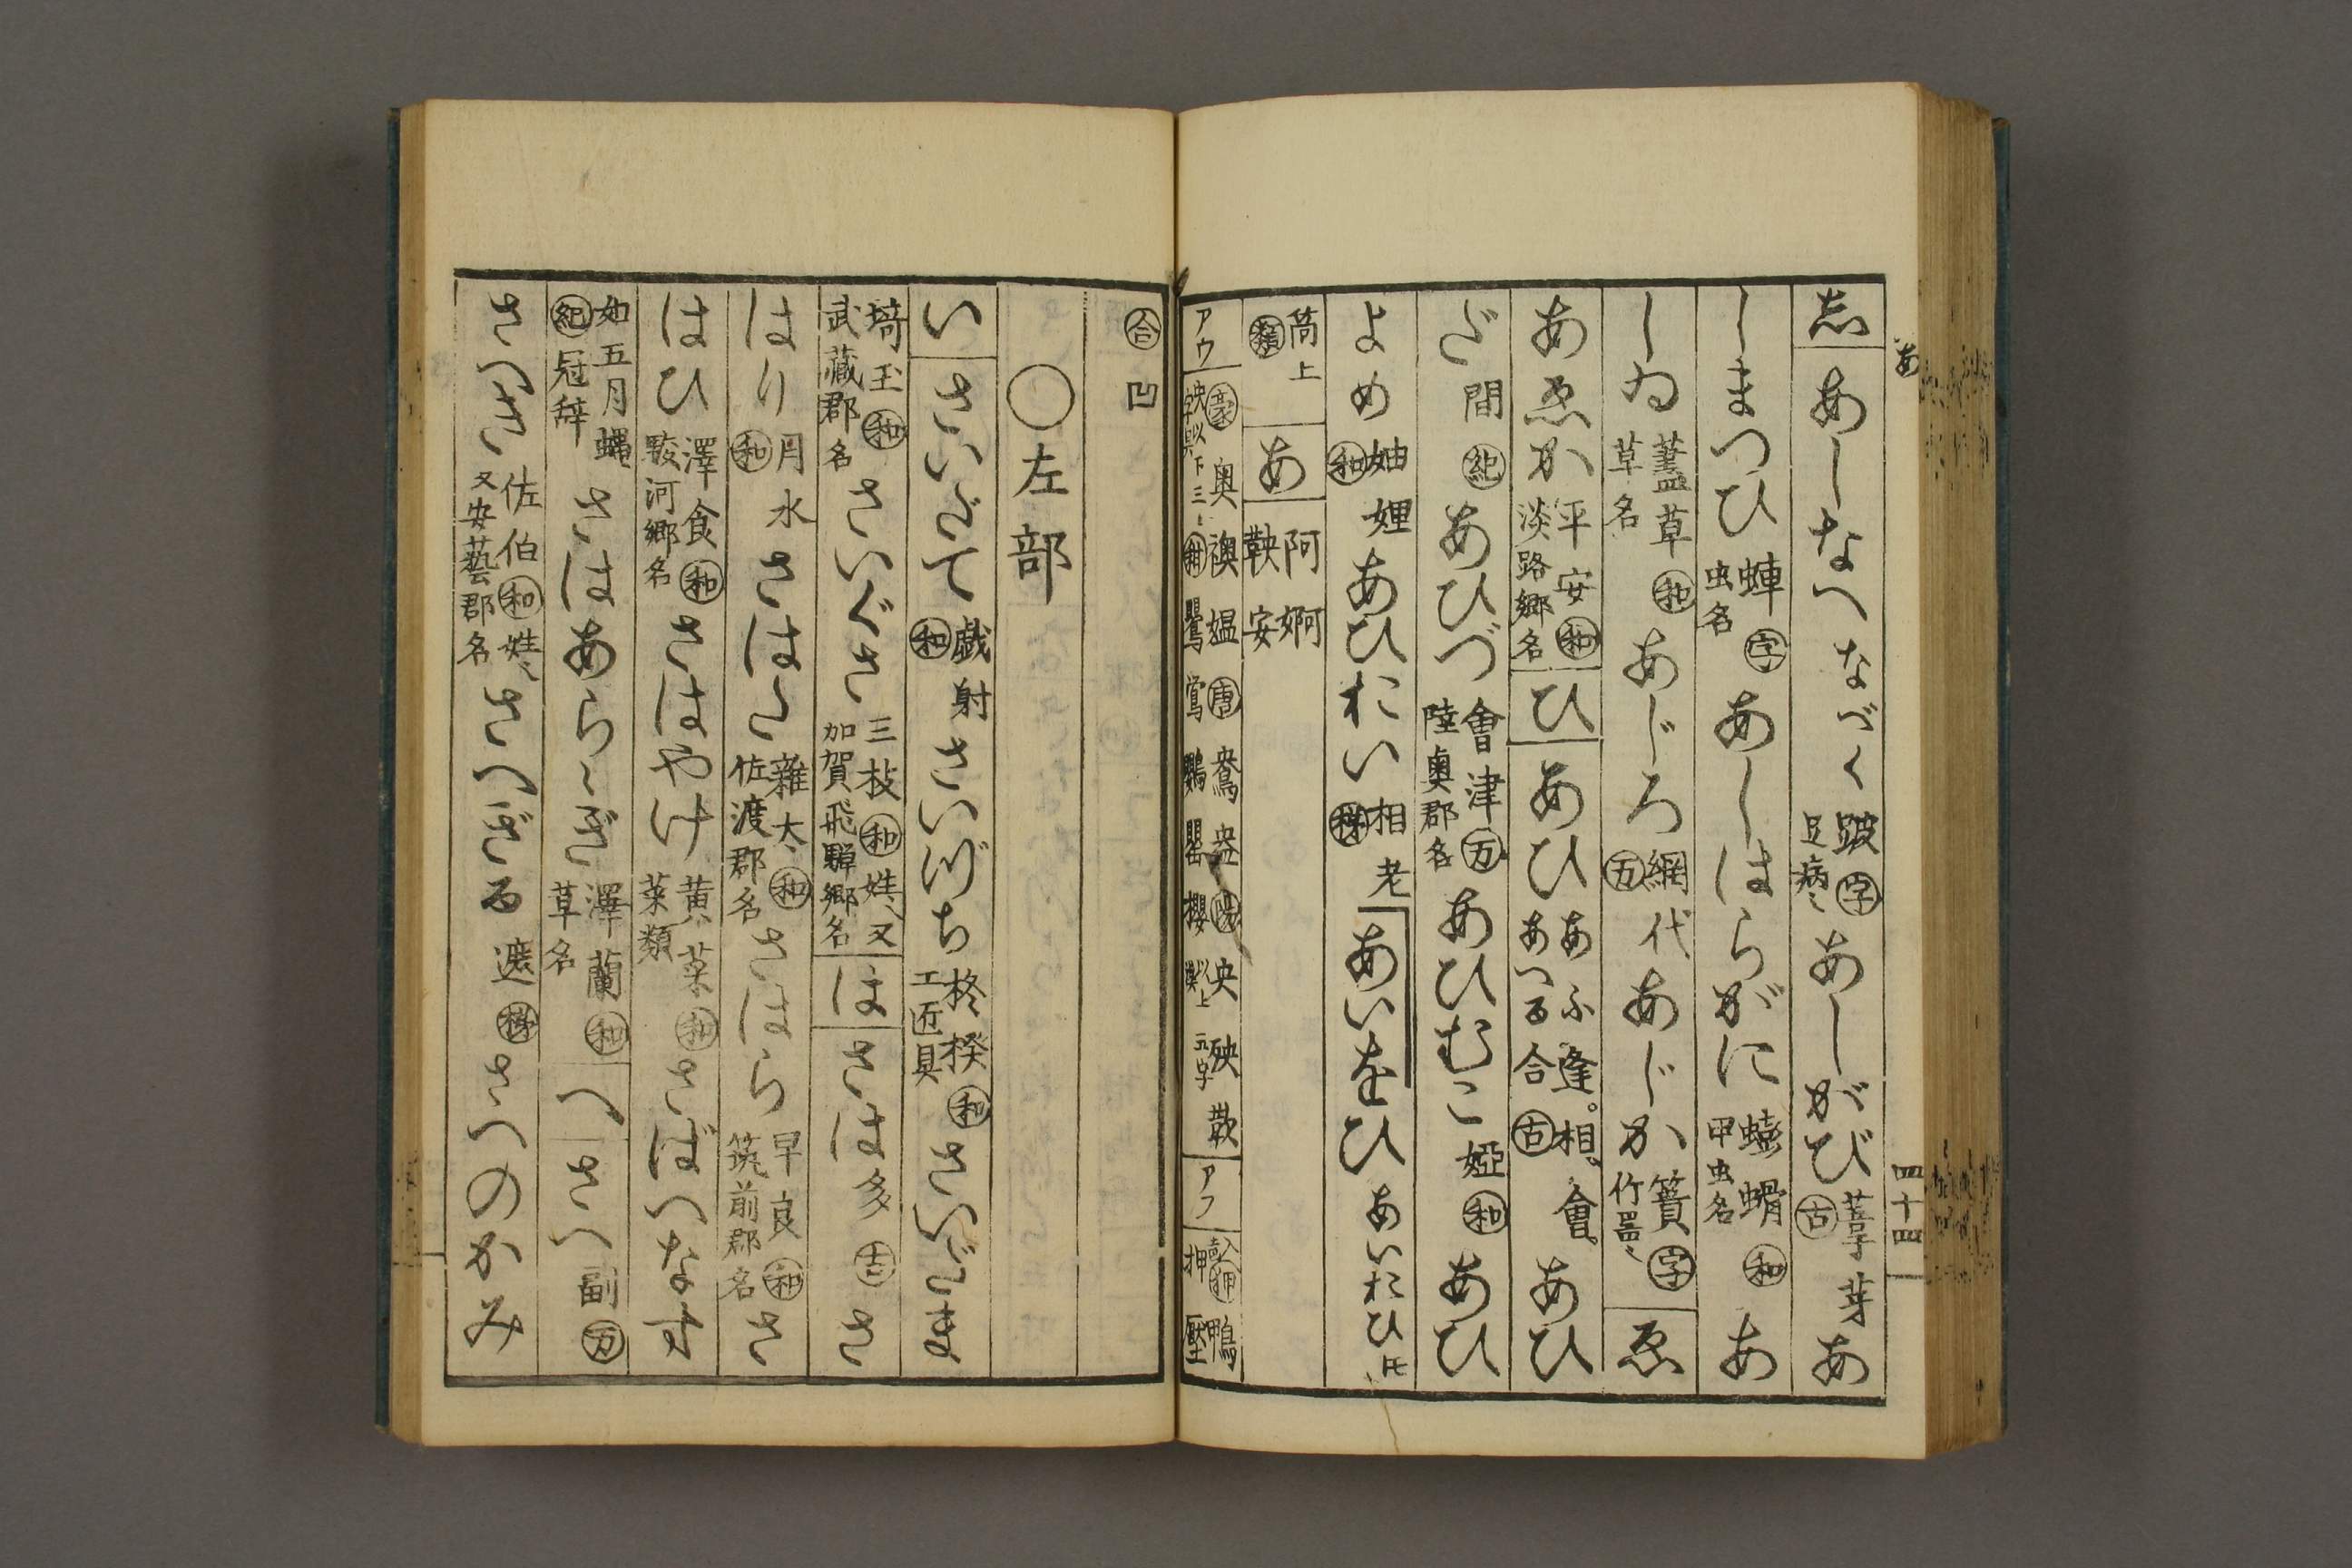 あ
四十四
志 あしなへ なべく 跛 字 足病ミ あしがび 葦芽 古 あ
しまつひ 蝉 字 虫名 あしはらがに 蟛螖 和 甲虫名 あ
しゐ 藎草 和 草名 あじろ 網代 万 あじか 簣 字 竹器ミ ゑ
あゑか 平安 和 淡路郷名 ひ あひ あふ逢。相、會。 あつる合 古 あひ
だ 間 紀 あひづ 會津 万 陸奥郡名 あひむこ 婭 和 あひ
よめ 妯娌 和 あひおい 相老 あいをひ あいおひ氏
萵上 類 あ 阿婀 鞅安
アウ 豪 奥 襖 媼 唐 鴦 盎 陽 央 殃 鞅 以上 アフ 押 鴨 壓
合 凹
○左部
い さいだて 戯射 和 さいづち 柊揆 和 工匠具 さいだま
埼玉 和 武藏郡名 さいぐさ 三枝 和 姓、又 加賀飛騨郷名 ほ さは 多 古 さ
はり 月水 和 さはた 雜太 和 佐渡郡名 さはら 早良 和 筑前郡名 さ
はひ 澤食 和 駿河郷名 さはやけ 黄菜 和 菜類 さばへなす
如五月蠅 紀 冠辞 さはあらゝぎ 澤蘭 和 草名 へ さへ 副 万
さへき 佐伯 和 姓ミ 又安藝郡名 さへぎる 遮 さへのかみ